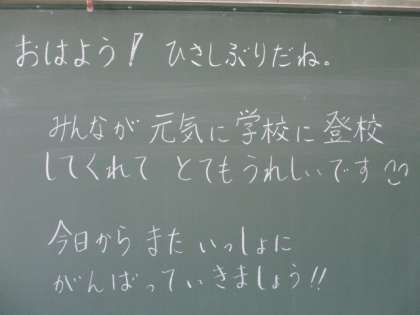 おはよう! ひさしぶりだね。
みんなが 元気に学校に 登校
してくれて とてもうれしいです
今日から また いっしょに
がんばっていきましょう!!